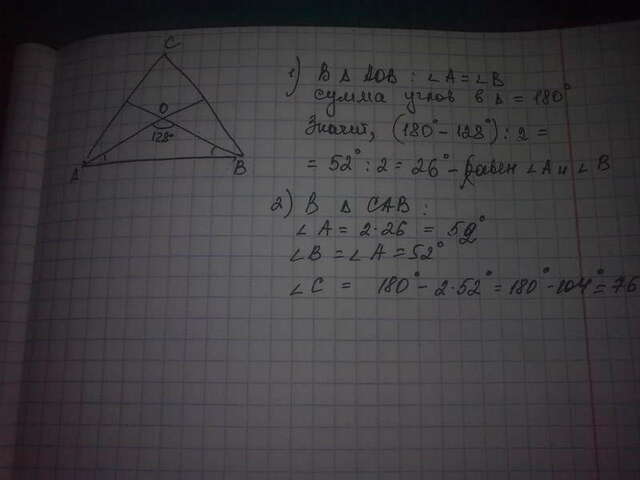 C
O
128°
A
B
1) В Δ AOB : ∠A = ∠B
сумма углов в Δ = 180°
Значит, (180° - 128°) : 2 =
= 52° : 2 = 26° - равен ∠A и ∠B
2) В Δ CAB :
∠A = 2·26 = 52°
∠B = ∠A = 52°
∠C = 180° - 2·52° = 180° - 104° = 76